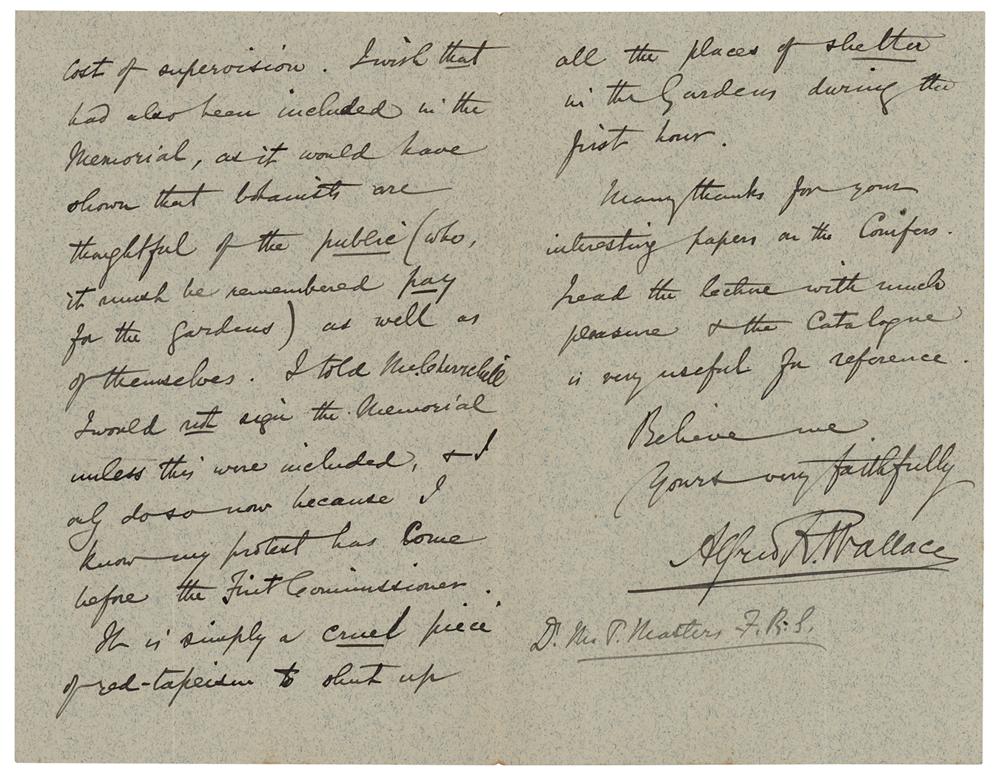 cost of supervision. I wish that
had also been included in the
Memorial, as it would have
shown that botanists are
thoughtful of the public (who,
it must be remembered pay
for the Gardens) as well as
of themselves. I told Mr.
I would not sign the Memorial
unless this were included, & I
only do so now because I
know my protest has come
before the First Commissioner.
It is simply a cruel piece
of red-tapeism to shut up
all the places of shelter
in the Gardens during the
first hour.
Many thanks for your
interesting papers on the Conifers.
I read the lecture with much
pleasure & the Catalogue
is very useful for reference.
Believe me
Yours very faithfully
Alfred R. Wallace
Dr. M. T. Masters F.R.S.